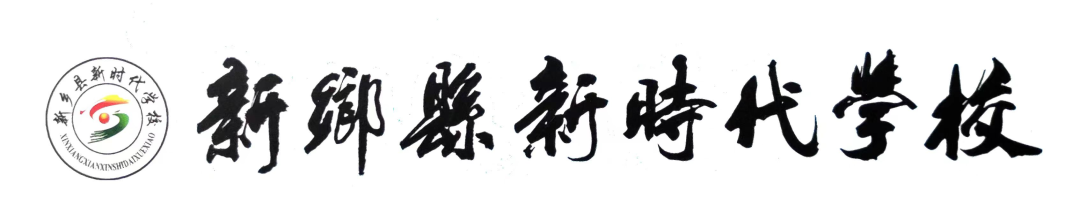 新乡县新时代学校
XINXIANGXIANXINSHIDAIXUEXIAO
新鄉縣新時代學校